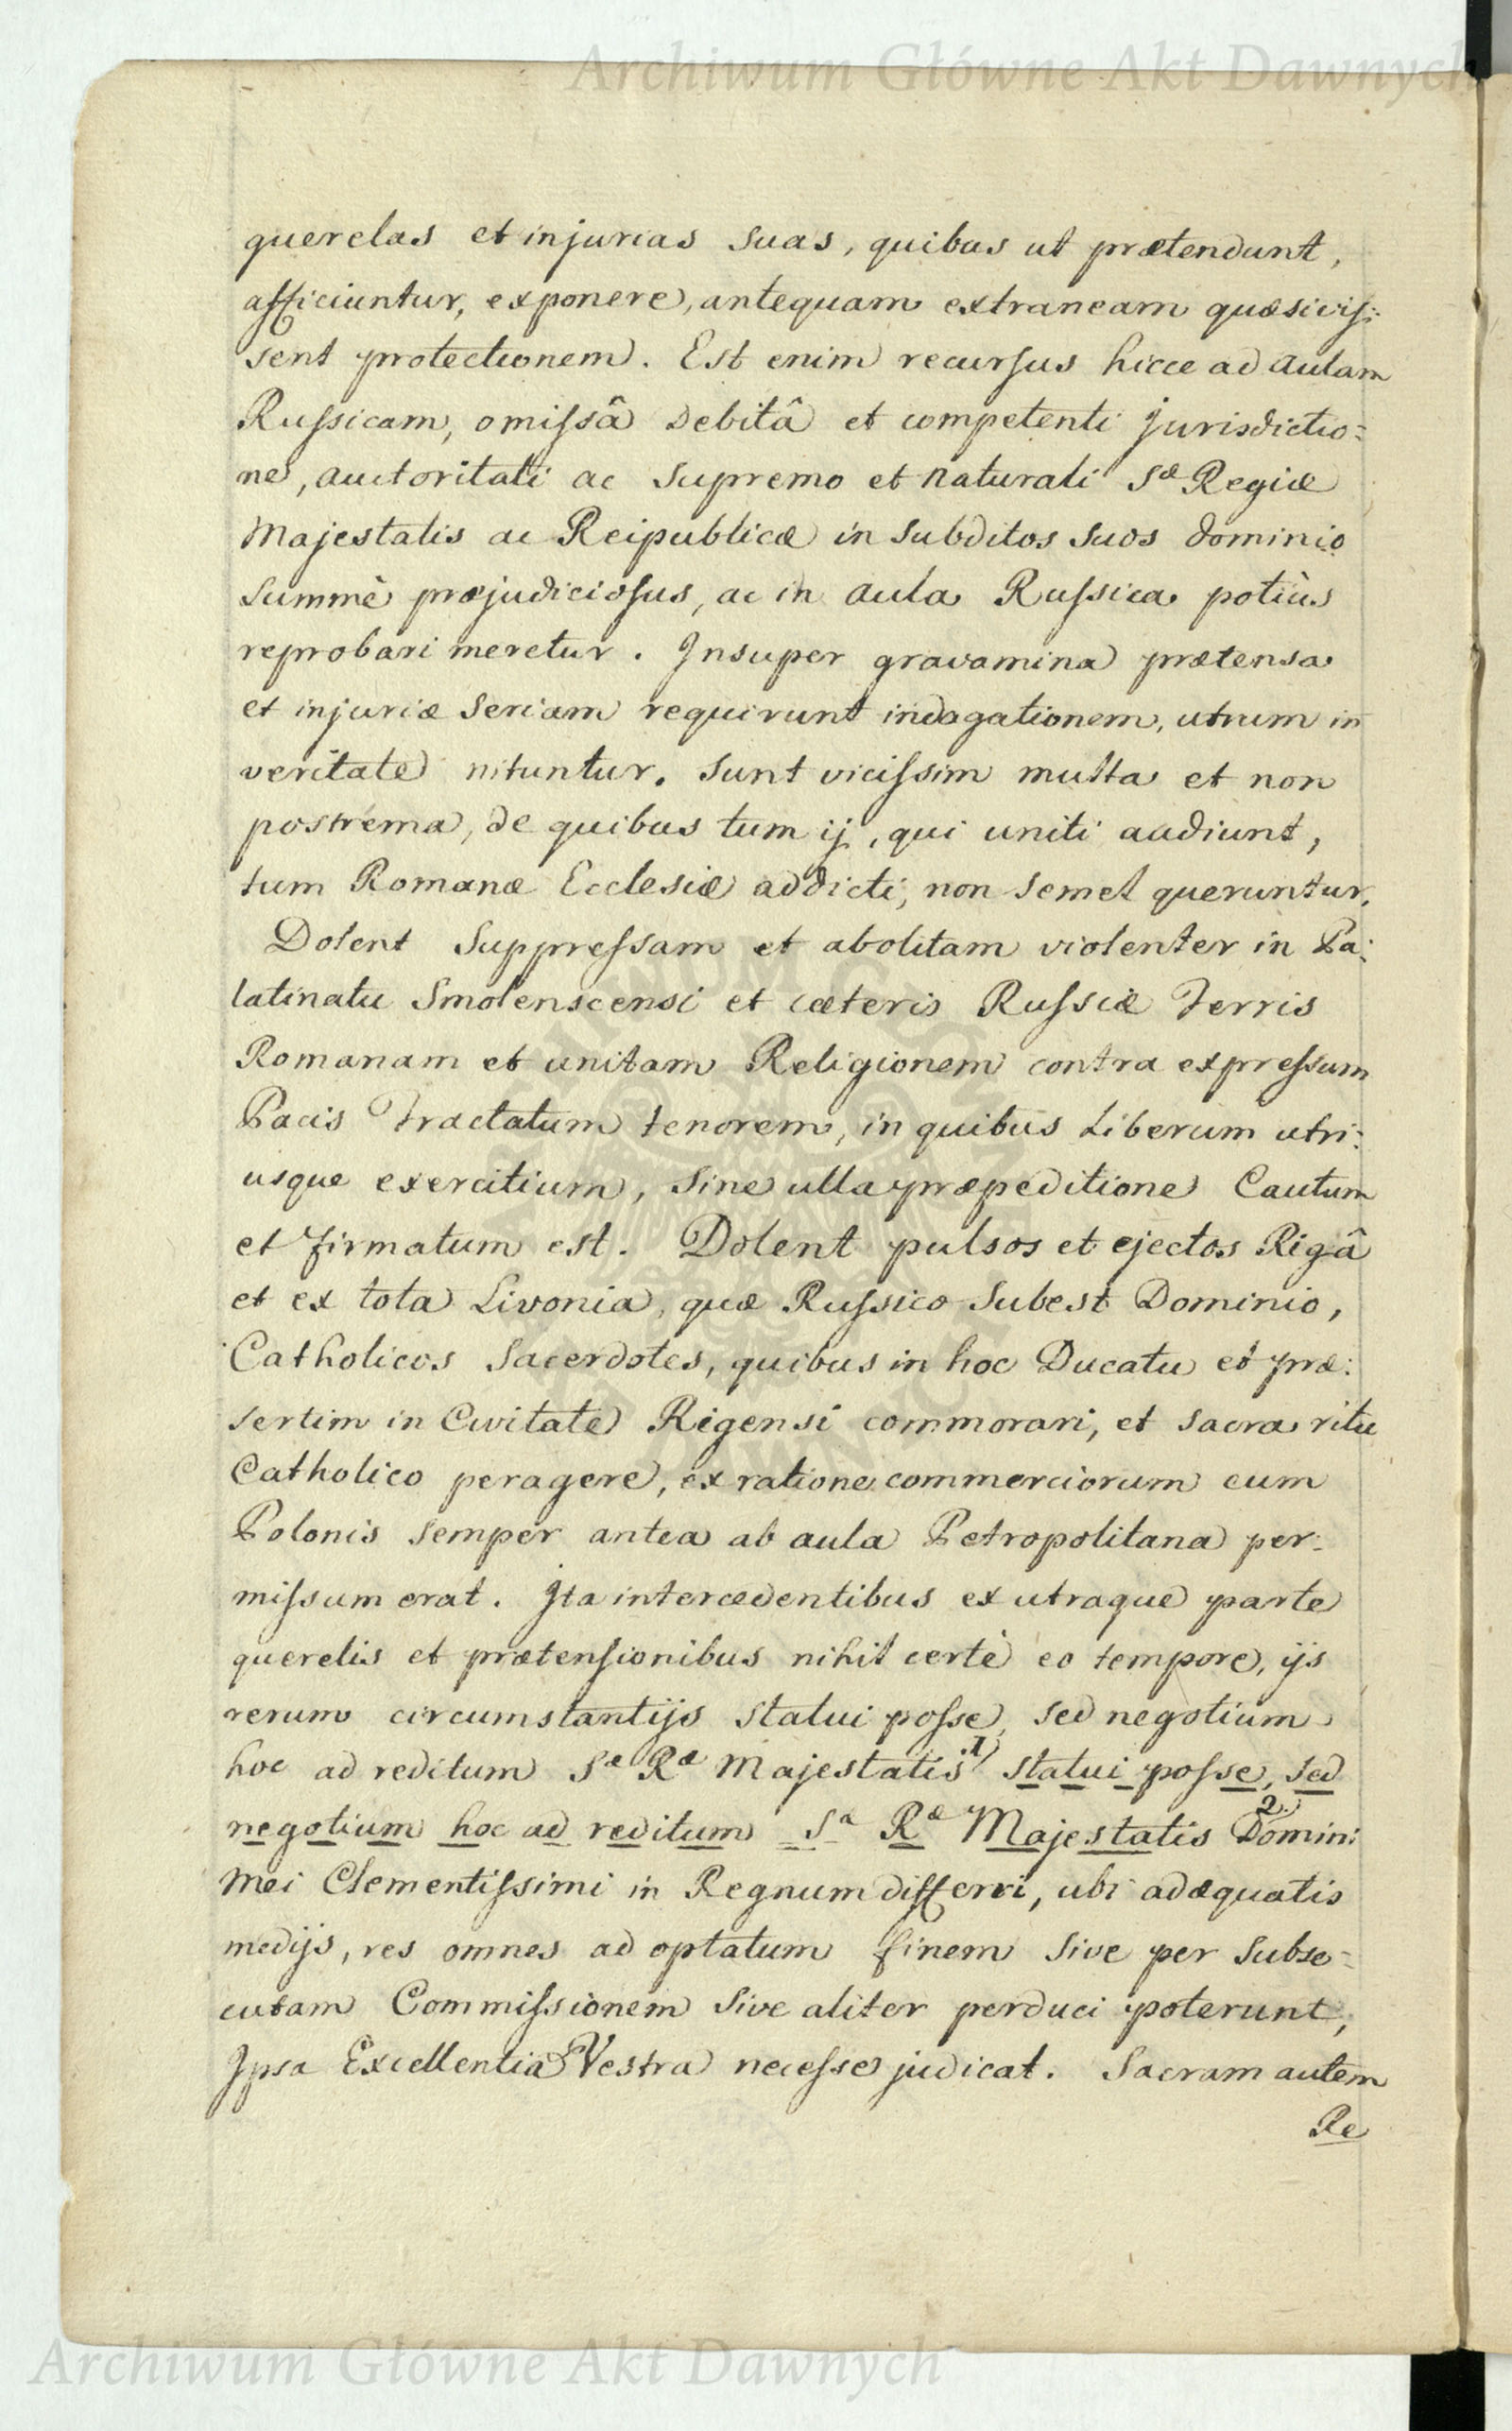 Archiwum Główne Akt Dawnych
querelas et injurias suas, quibus ut prætendunt,
afficiuntur, exponere, antequam extraneam quæsivis:
sent protectionem. Est enim recursus hicce ad aulam
Russicam, omissâ debitâ et competenti jurisdictio=
ne, auctoritati ac supremo et naturali Sæ Regiæ
Majestatis ac Reipublicæ in subditos suos dominio
summè præjudiciosus, ac in aula Russica potiùs
reprobari meretur. Insuper gravamina prætensa
et injuriæ seriam requirunt indagationem, utrum in
veritate nituntur. Sunt vicissim multa et non
postrema, de quibus tum ij, qui uniti audiunt,
tum Romanæ Ecclesiæ addicti, non semel queruntur.
Dolent suppressam et abolitam violenter in Pa:
latinatu Smolenscensi et cæteris Russiæ Terris
Romanam et unitam Religionem contra expressum
Pacis Tractatum tenorem, in quibus liberum utri:
usque exercitium, sine ulla præpeditione Cautum
et firmatum est. Dolent pulsos et ejectos Rigâ
et ex tota Livonia, quæ Russico subest Dominio,
Catholicos Sacerdotes, quibus in hoc Ducatu et præ:
sertim in Civitate Rigensi commorari, et sacra ritu
Catholico peragere, ex ratione commerciorum cum
Polonis semper antea ab aula Petropolitana per:
missum erat. Ita intercedentibus ex utraque parte
querelis et prætensionibus nihil certè eo tempore, ijs
rerum circumstantijs statui posse, sed negotium
hoc ad reditum Sæ Ræ Majestatis 1) statui posse, sed
negotium hoc ad reditum Sæ Ræ Majestatis 2.) Domini
Mei Clementissimi in Regnum differri, ubi adæquatis
medijs, res omnes ad optatum finem sive per subse=
cutam Commissionem sive aliter perduci poterunt,
Ipsa Excellentia Vestra necesse judicat. Sacram autem
Re
Archiwum Główne Akt Dawnych